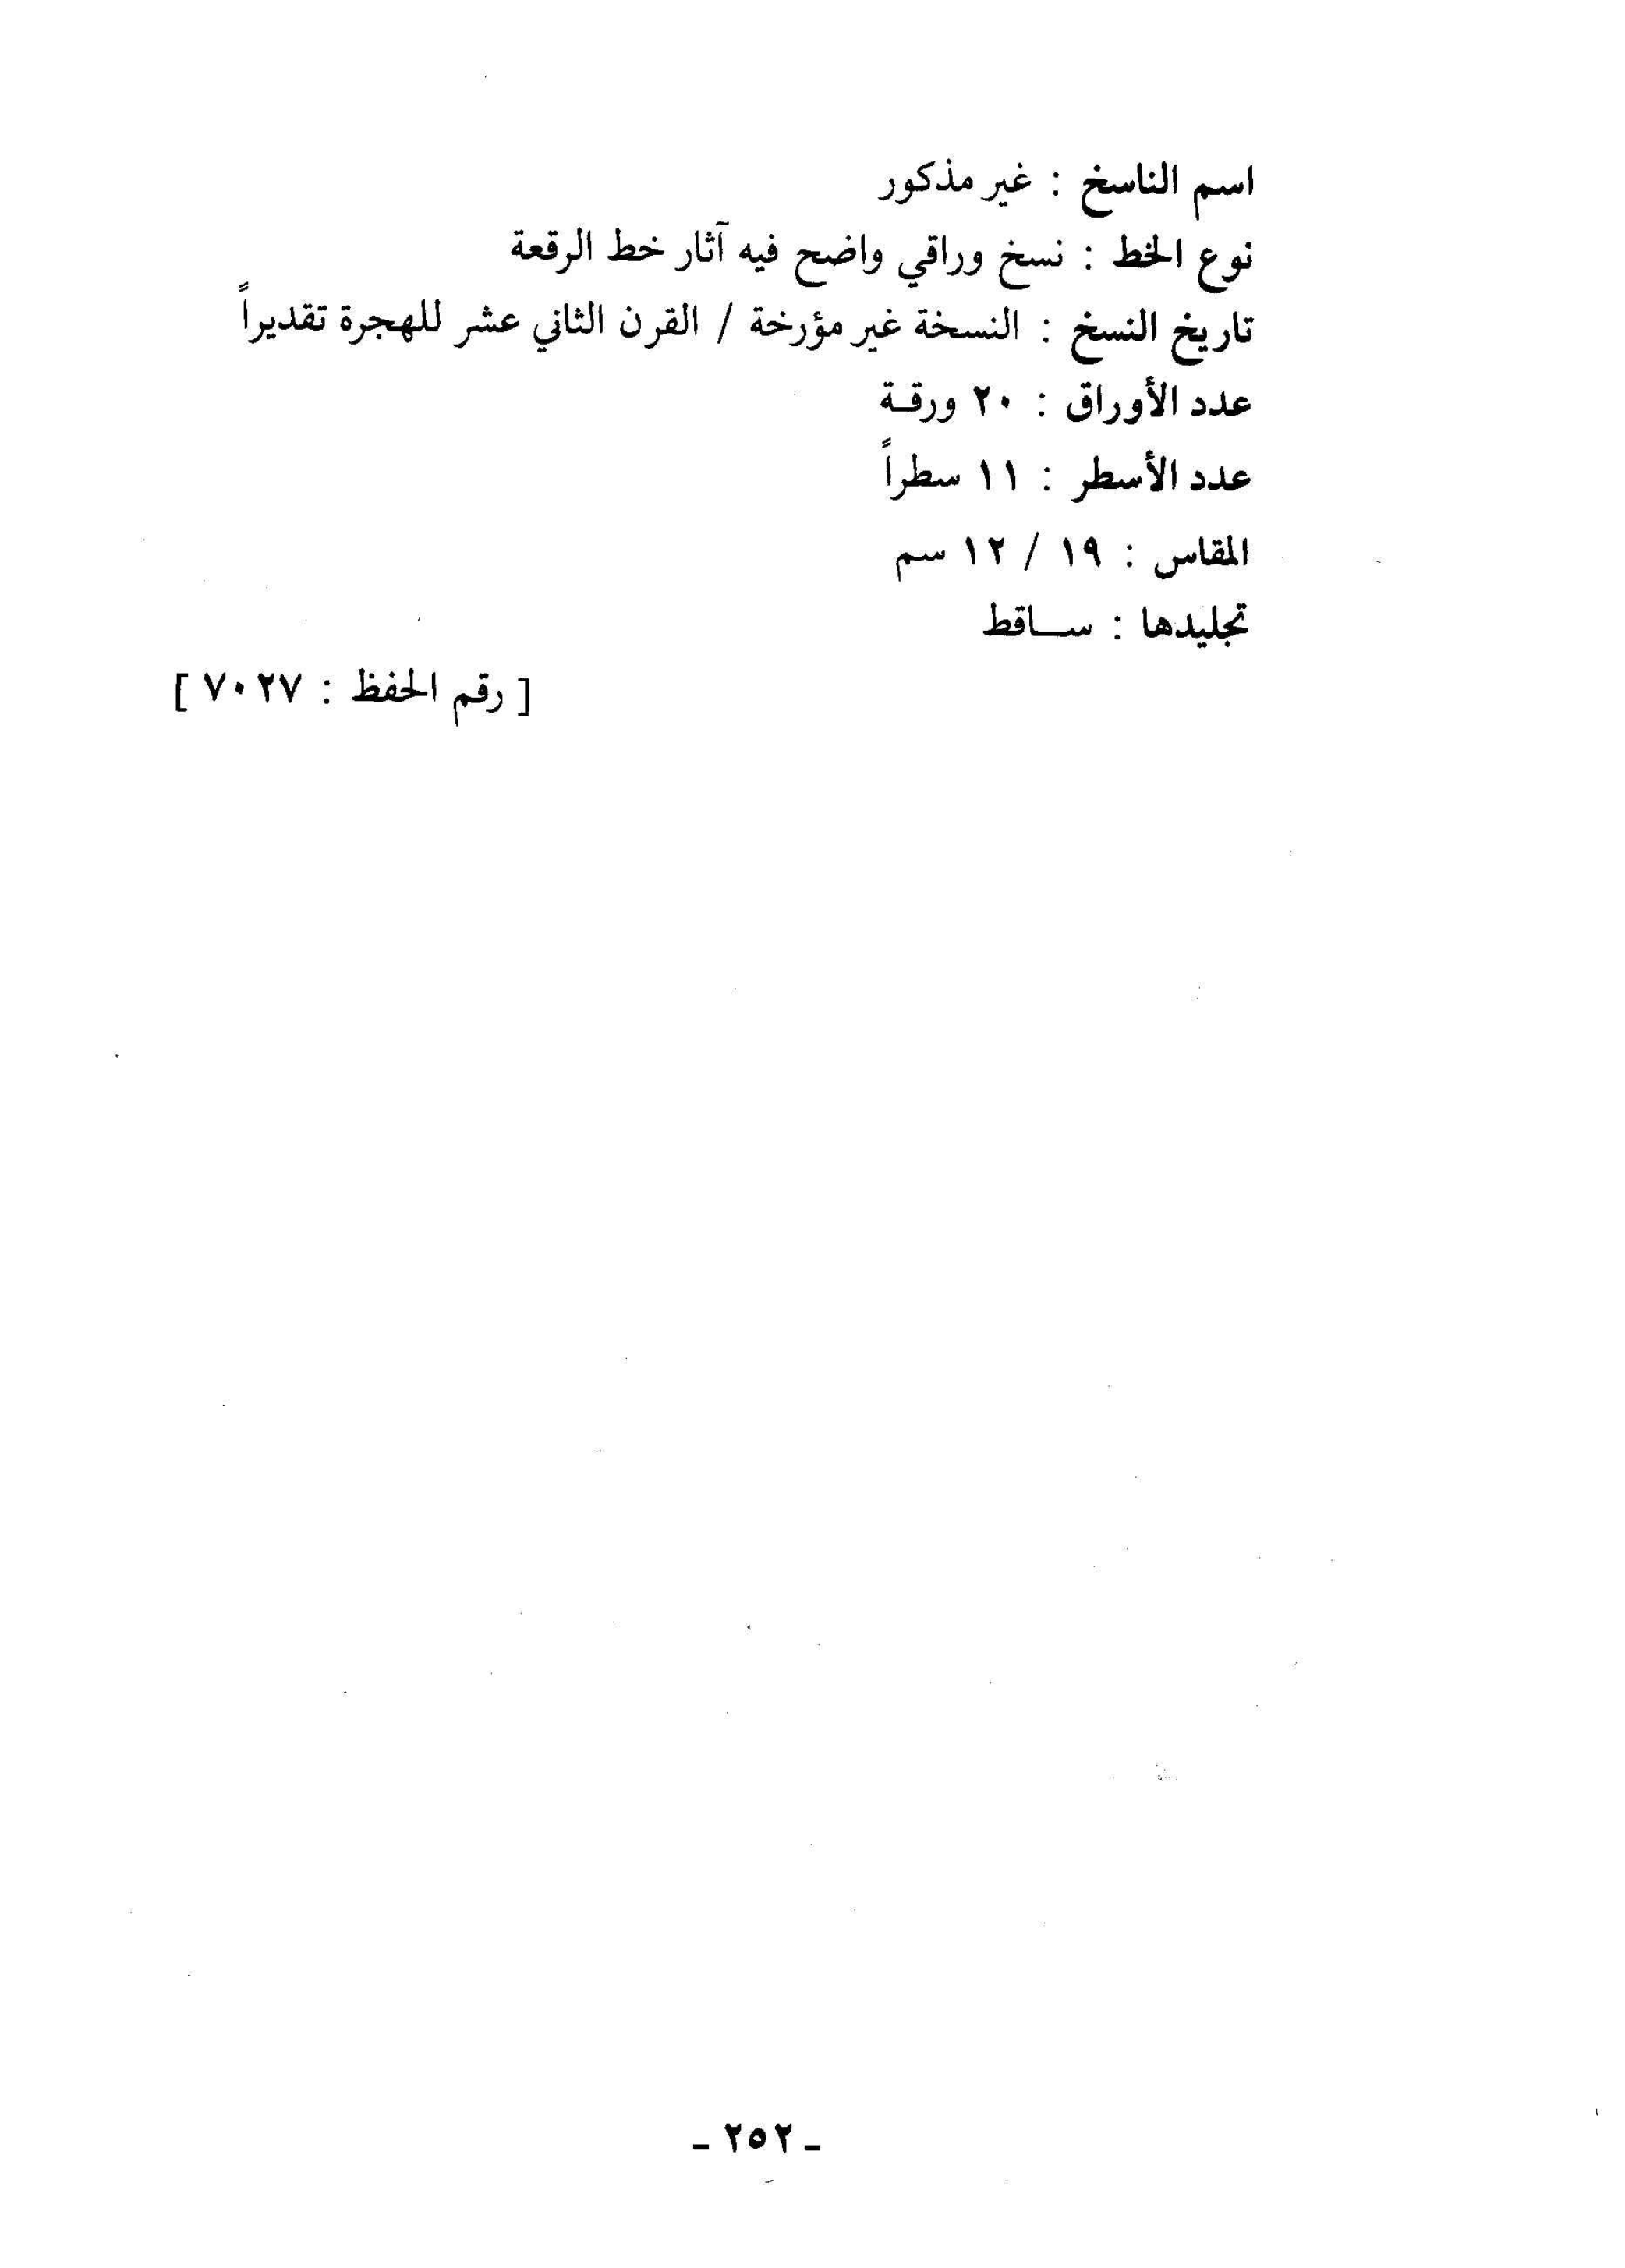 اسم الناسخ : غير مذكور
نوع الخط : نسخ وراقي واضح فيه آثار خط الرقعة
تاريخ النسخ : النسخة غير مؤرخة / القرن الثاني عشر للهجرة تقديراً
عدد الأوراق : ٢٠ ورقـة
عدد الأسطر : ١١ سطراً
المقاس : ١٩ / ١٢ سم
تجليدها : ســاقط
[ رقم الحفظ : ٧٠٢٧ ]
ـ ٢٥٢ ـ